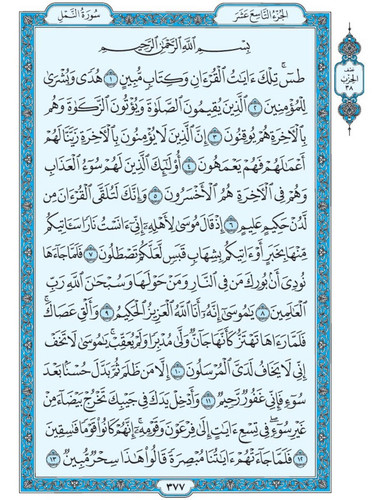 سُورَةُ النَّمْلِ
الجُزْءُ التَّاسِعَ عَشَرَ
الحِزْبُ
٣٨
بِسْمِ ٱللَّهِ ٱلرَّحْمَٰنِ ٱلرَّحِيمِ
طسٓ ۚ تِلْكَ ءَايَٰتُ ٱلْقُرْءَانِ وَكِتَابٍ مُّبِينٍ ١ هُدًى وَبُشْرَىٰ
لِلْمُؤْمِنِينَ ٢ ٱلَّذِينَ يُقِيمُونَ ٱلصَّلَوٰةَ وَيُؤْتُونَ ٱلزَّكَوٰةَ وَهُم
بِٱلْءَاخِرَةِ هُمْ يُوقِنُونَ ٣ إِنَّ ٱلَّذِينَ لَا يُؤْمِنُونَ بِٱلْءَاخِرَةِ زَيَّنَّا لَهُمْ
أَعْمَٰلَهُمْ فَهُمْ يَعْمَهُونَ ٤ أُو۟لَٰٓئِكَ ٱلَّذِينَ لَهُمْ سُوٓءُ ٱلْعَذَابِ
وَهُمْ فِى ٱلْءَاخِرَةِ هُمُ ٱلْأَخْسَرُونَ ٥ وَإِنَّكَ لَتُلَقَّى ٱلْقُرْءَانَ مِن
لَّدُنْ حَكِيمٍ عَلِيمٍ ٦ إِذْ قَالَ مُوسَىٰ لِأَهْلِهِۦٓ إِنِّىٓ ءَانَسْتُ نَارًا سَـَٔاتِيكُم
مِّنْهَا بِخَبَرٍ أَوْ ءَاتِيكُم بِشِهَابٍ قَبَسٍ لَّعَلَّكُمْ تَصْطَلُونَ ٧ فَلَمَّا جَآءَهَا
نُودِىَ أَنۢ بُورِكَ مَن فِى ٱلنَّارِ وَمَنْ حَوْلَهَا وَسُبْحَٰنَ ٱللَّهِ رَبِّ
ٱلْعَٰلَمِينَ ٨ يَٰمُوسَىٰٓ إِنَّهُۥٓ أَنَا ٱللَّهُ ٱلْعَزِيزُ ٱلْحَكِيمُ ٩ وَأَلْقِ عَصَاكَ ۚ
فَلَمَّا رَءَاهَا تَهْتَزُّ كَأَنَّهَا جَآنٌّ وَلَّىٰ مُدْبِرًا وَلَمْ يُعَقِّبْ ۚ يَٰمُوسَىٰ لَا تَخَفْ
إِنِّى لَا يَخَافُ لَدَىَّ ٱلْمُرْسَلُونَ ١٠ إِلَّا مَن ظَلَمَ ثُمَّ بَدَّلَ حُسْنًۢا بَعْدَ
سُوٓءٍ فَإِنِّى غَفُورٌ رَّحِيمٌ ١١ وَأَدْخِلْ يَدَكَ فِى جَيْبِكَ تَخْرُجْ بَيْضَآءَ مِنْ
غَيْرِ سُوٓءٍ ۖ فِى تِسْعِ ءَايَٰتٍ إِلَىٰ فِرْعَوْنَ وَقَوْمِهِۦٓ ۚ إِنَّهُمْ كَانُوا۟ قَوْمًا فَٰسِقِينَ
١٢ فَلَمَّا جَآءَتْهُمْ ءَايَٰتُنَا مُبْصِرَةً قَالُوا۟ هَٰذَا سِحْرٌ مُّبِينٌ ١٣
٣٧٧